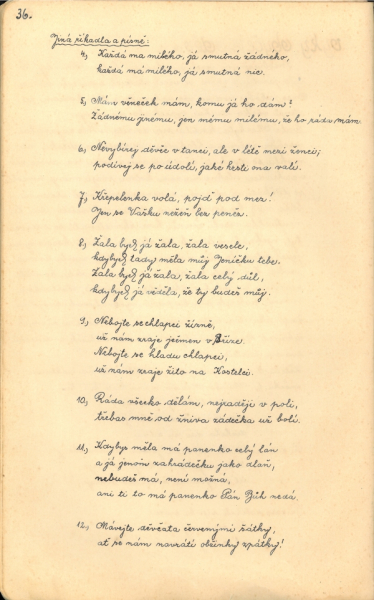 36.
Jiná říkadla a písně:
4, Každá má milého, já smutná žádného,
každá má milého, já smutná nic.
5, Mám věneček mám, komu já ho dám?
Žádnému jinému, jen mému milému, že ho ráda mám.
6, Nevybírej děvče v tanci, ale v létě mezi ženci;
podívej se po údolí, jaké hrsti ona valí.
7, Křepelenka volá, pojď pod mez!
Jen se Vašku nežeň bez peněz.
8, Žala bych já žala, žala vesele,
kdybych tady měla můj Jeníčku tebe.
Žala bych já žala, žala celý důl,
kdybych já věděla, že ty budeš můj.
9, Nebojte se chlapci žízně,
už nám zraje ječmen v Bříze.
Nebojte se hladu chlapci,
už nám zraje žito na Kostelci.
10, Ráda všecko dělám, nejraději v poli,
třebas mně od žniva zádečka už bolí.
11, Kdybys měla má panenko celý lán
a já jenom zahrádečku jako dlaň,
nebudeš má, není možná,
ani ti to má panenko Pán Bůh nedá.
12, Mávejte děvčata červenými šátky,
ať se nám navrátí obžinky zpátky!